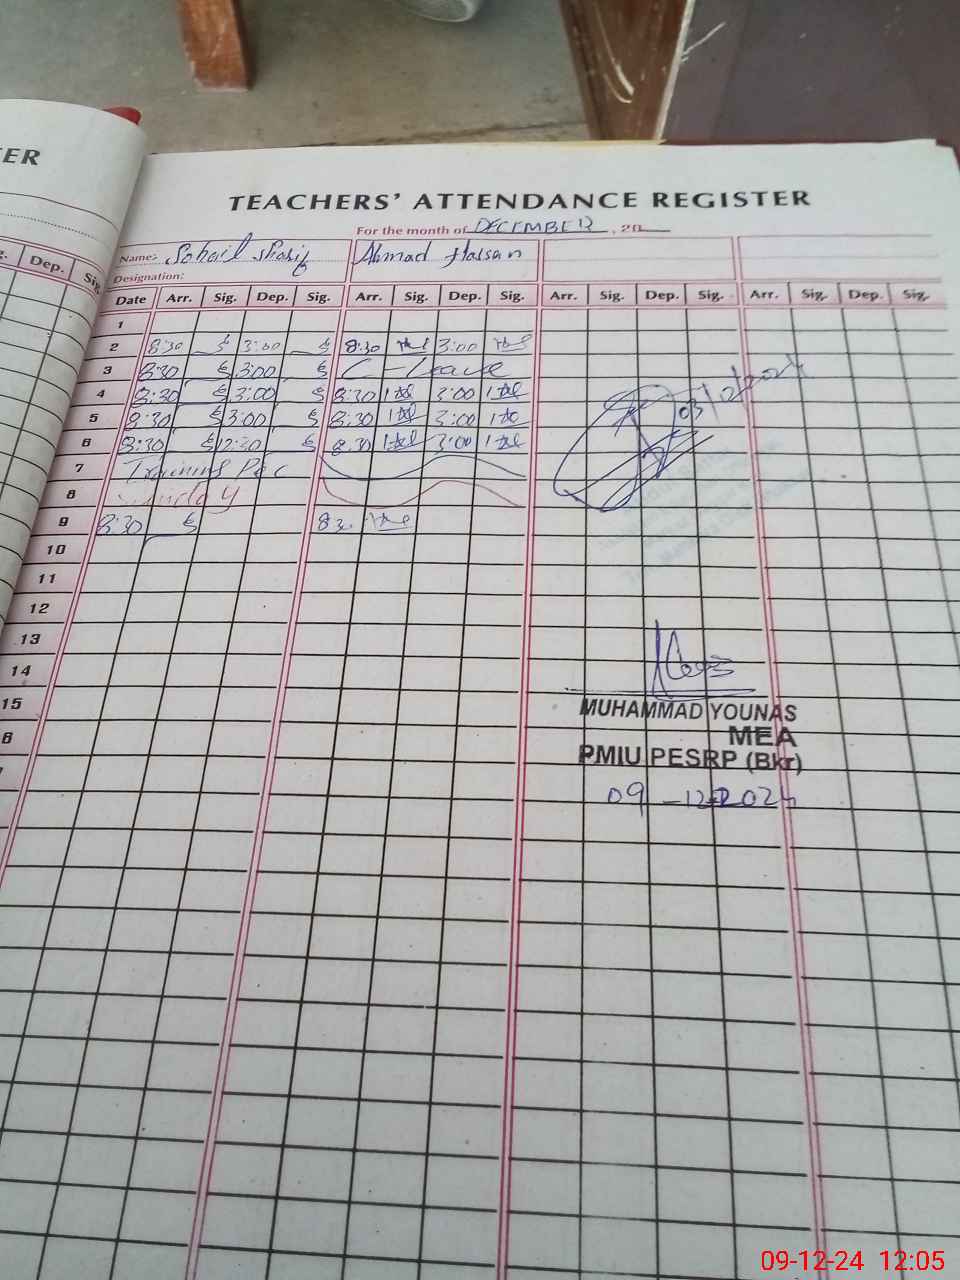 ER
TEACHERS' ATTENDANCE REGISTER
For the month of DECEMBER, 20
Name: Sohail Sharif Ahmad Hassan
Designation:
g. Dep. Sig.
Date Arr. Sig. Dep. Sig. Arr. Sig. Dep. Sig. Arr. Sig. Dep. Sig. Arr. Sig. Dep. Sig.
1
2 8:30 3:00 8:30 3:00
3 8:30 3:00 C-Leave
4 8:30 3:00 8:30 3:00
5 8:30 3:00 8:30 3:00
6 8:30 12:30 8:30 3:00
03/12/2024
7 Training
8 Sunday
9 8:30 8:30
10
11
12
13
14
15
6
MUHAMMAD YOUNAS
MEA
PMIU PESRP (Bkr)
09-12-2024
09-12-24 12:05